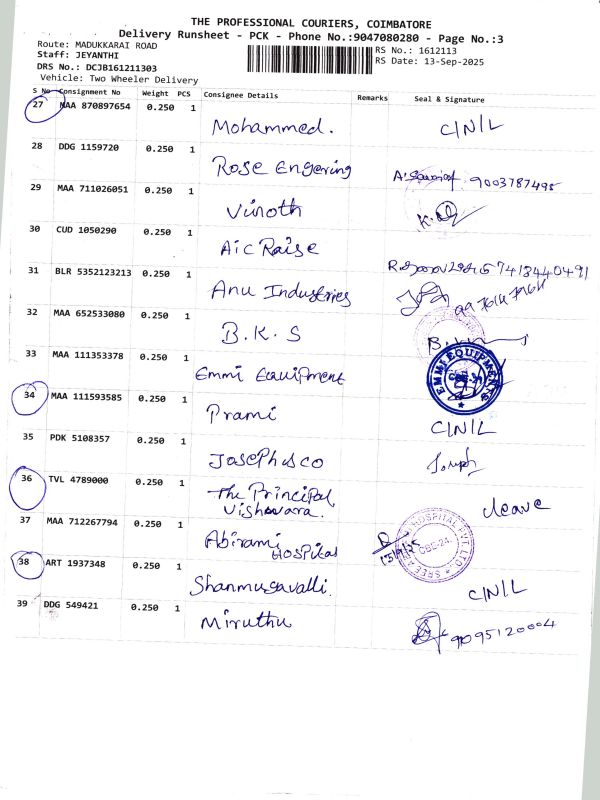 THE PROFESSIONAL COURIERS, COIMBATORE
Delivery Runsheet - PCK - Phone No.:9047080280 - Page No.:3
Route: MADUKKARAI ROAD
Staff: JEYANTHI
DRS No.: DCJB161211303
Vehicle: Two Wheeler Delivery
RS No.: 1612113
RS Date: 13-Sep-2025
S No Consignment No Weight PCS Consignee Details Remarks Seal & Signature
27 MAA 870897654 0.250 1 Mohammed. C/N/L
28 DDG 1159720 0.250 1 Rose Engering 9003787495
29 MAA 711026051 0.250 1 Vinoth
30 CUD 1050290 0.250 1 Aic Raise 7418440491
31 BLR 5352123213 0.250 1 Anu Industries
32 MAA 652533080 0.250 1 B.K.S
33 MAA 111353378 0.250 1 Emmi Equipment EMMI EQUIPMENTS
34 MAA 111593585 0.250 1 Prami C/N/L
35 PDK 5108357 0.250 1 Joseph & co Joseph
36 TVL 4789000 0.250 1 The Principal Vishwara. leave
37 MAA 712267794 0.250 1 Abirami Hospital 13/9/25 HOSPITAL PVT. LTD. CBE-24. SREE
38 ART 1937348 0.250 1 Shanmugavalli. C/N/L
39 DDG 549421 0.250 1 Miruthu 9095120004